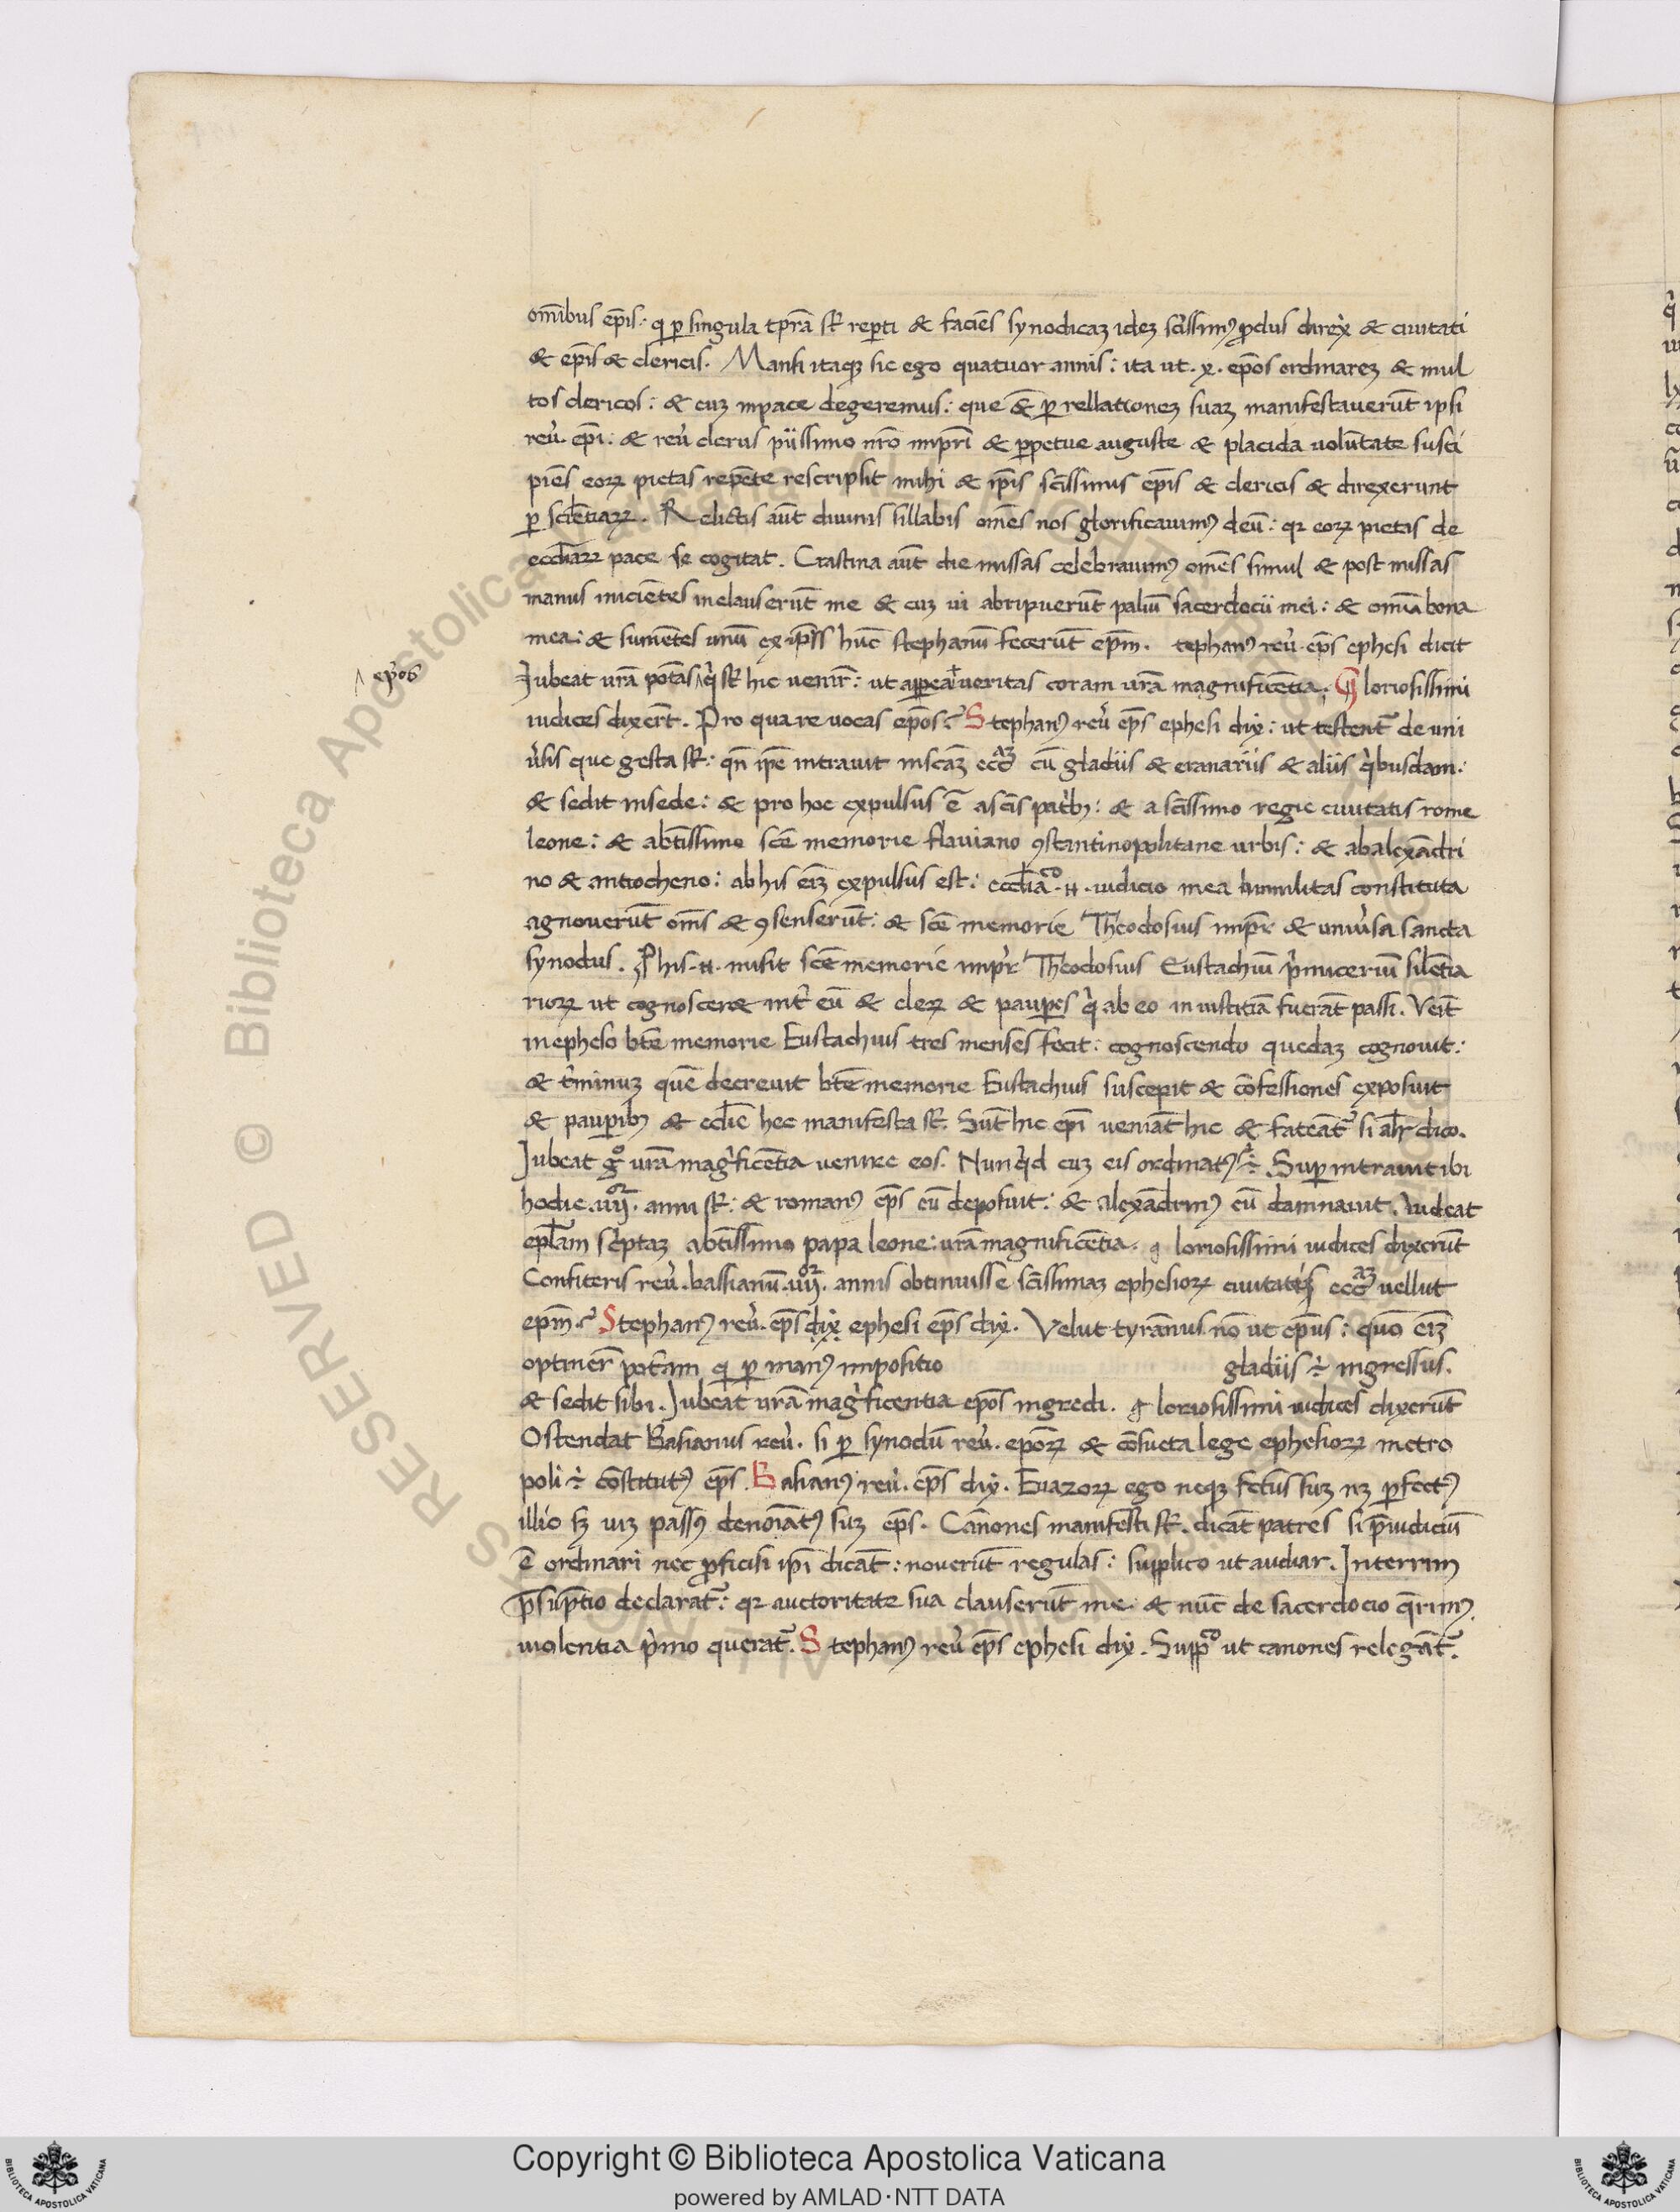 om̄ibus ep̄is: q̇ ꝑ singula tp̄rā st̄ reꝑti & faciēs synodicaꝫ ideꝫ sc̄issimꝰ ꝓclus direx̄ & ciuitati
& ep̄is & clericis. Mansi itaqꝫ sic ego quatuor annis: ita ut .x. ep̄os ordinareꝫ & mul
tos clericos: & cuꝫ in pace degeremus: que & ꝑ rellationeꝫ suaꝫ manifestauerūt ipsi
reu̇. ep̄i: & reu̇ clerus piissimo nr̄o impr̄i & ꝑpetue auguste & placida volūtate susci
piēs eoꝝ pietas repēte rescripsit mihi & ip̄is sc̄issimis ep̄is & clericis & direxerunt
ꝑ sciētiaꝝ. Relictis aūt diuinis sillabis om̄es nos glorificauimꝰ deū: qꝛ eoꝝ pietas de
eccl̄iaꝝ pace se cogitat. Crastina aūt die missas celebrauimꝰ om̄es simul & post missas
manus inicientes inclauserūt me & cuꝫ ui abripuerūt paliū sacerdocii mei: & omīa bona
mea: & sumētes unū ex ip̄is hūc stephanū fecerūt ep̄m. tephanꝰ reu̇. ep̄s ephesi dicit
ep̄os
Iubeat ur̄a potās q̇ st̄ hic venir̄: ut appeat ueritas coram ur̄a magnificētia. G loriosissimi
iudices dixer̄t. Pro qua re uocas ep̄os? Stephanꝰ reu̇ ep̄s ephesi dix̄: ut testent᷑ de uni
u̇sis que gesta st̄: qn̄ ip̄e intrauit in scāꝫ eccaꝫ cū gladiis & eranariis & aliis q̇busdam:
& sedit in sede: & pro hoc expulsus ē a sc̄is patribꝫ: & a sc̄issimo regie ciuitatis rome
leone: & abtissimo sc̄e memorie flauiano ꝯstantinopolitane urbis: & ab alexādri
no & antiocheno: ab his eīꝫ expulsus est: eccl̄iaco .n. iudicio mea humilitas constituta
agnouerūt om̄s & ꝯsenserūt: & sc̄e memorie Theodosius impr̄ & uniu̇sa sancta
synodus. P his .n. misit sc̄e memorie impr̄ Theodosius Eustachiū p̄micerium silētia
rioꝝ ut cognosceret int̄ eū & cleꝝ & pauꝑes q̇ ab eo iniustitiā fuerāt passi. Veīt
in epheso bt̄e memorie Eustachius tres menses fecit: cognoscendo quedaꝫ cognouit:
& t̄minuꝫ quē decreuit bt̄e memorie Eustachius suscepit & cōfessiones exposuit
& pauꝑibꝫ & eccl̄ie hec manifesta st̄. Sūt hic ep̄i veniāt hic & fateāt᷑ si al̄r dico.
Iubeat gͦ ur̄a mag̓ficētia uenire eos. Nunq̇d cuꝫ eis ordinatꝰ ÷ Suꝑ intrauit ibi
hodie .iiijor. anni st̄: & romanꝰ ep̄s eū deposuit: & alexādrinꝰ eū damnauit. iubeat
ep̄lam sc̄ptaꝫ abtissimo papa leone: ur̄a magnificētia. g loriosissimi iudices dixerūt
Confiteris reu̇. bassianū .iiijor. annis obtinuisse sc̄issimaꝫ ephesioꝝ ciuitatis eccaꝫ uellut
ep̄m? Stephanꝰ reu̇. ep̄s dix̄ ephesi ep̄s dix̄. Velut tyrānus nō ut ep̄us: quō eīꝫ
optiner̄ potām q̇ ꝑ manꝰ impositio gladiis ÷ ingressus.
& sedit sibi. Iubeat ur̄a mag̓ficentia ep̄os ingredi. g loriosissimi iudices dixerūt
Ostendat Basianus reu̇. si ꝑ synodū reu̇. ep̄oꝝ & cōsueta lege ephesioꝝ metro
poli ÷ cōstitutꝰ ep̄s. Basianꝰ reu̇. ep̄s dix̄. Euazoꝝ ego neqꝫ fctūs suꝫ nꝫ ꝑfectꝰ
illic sꝫ uiꝫ passꝰ denoīatꝰ suꝫ ep̄s. Canones manifesti st̄. dicāt patres si p̄iudiciū
ē ordinari nec ꝓficisi ip̄i dicāt: nouerūt regulas: supplico ut audiar. Interrim
p̄sūptio declarat᷑: qꝛ auctoritate sua clauserūt me & nūc de sacerdocio qr̄imꝰ.
uiolentia p̄mo querat᷑. Stephanꝰ reu̇ ep̄s ephesi dix̄. Suppco ut canones relegāt᷑.
© Biblioteca Apostolica Vaticana
RESERVED
Copyright © Biblioteca Apostolica Vaticana
powered by AMLAD・NTT DATA
BIBLIOTECA APOSTOLICA VATICANA
BIBLIOTECA APOSTOLICA VATICANA